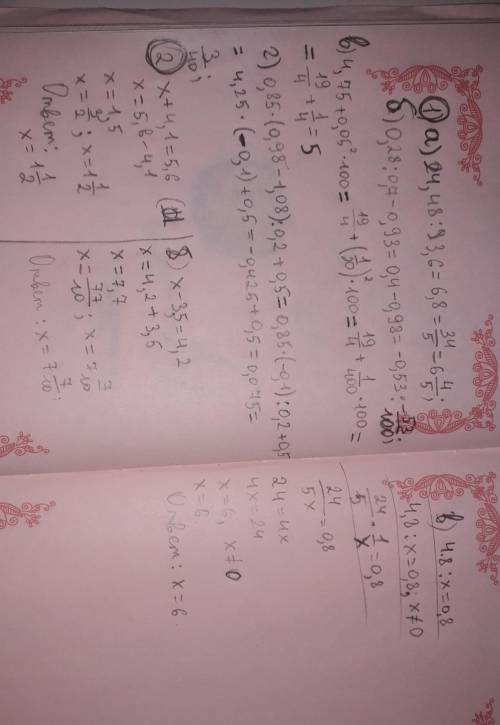 ① а) 24,48 : 3,6 = 6,8 = 34/5 = 6 4/5;
б) 0,28 : 0,7 - 0,93 = 0,4 - 0,93 = -0,53 : -53/100;
в) 4,75 + 0,05² · 100 = 19/4 + (1/20)² · 100 = 19/4 + 1/400 · 100 =
= 19/4 + 1/4 = 5
г) 0,85 · (0,98 - 1,08) : 0,2 + 0,5 = 0,85 · (-0,1) : 0,2 + 0,5
= 4,25 · (-0,1) + 0,5 = -0,425 + 0,5 = 0,075 =
3/40;
② x + 4,1 = 5,6
x = 5,6 - 4,1
x = 1,5
x = 3/2; x = 1 1/2
Ответ:
x = 1 1/2
б) x - 3,5 = 4,2
x = 4,2 + 3,5
x = 7,7
x = 77/10; x = 7 7/10
Ответ: x = 7 7/10;
в) 4.8 : x = 0,8
4,8 : x = 0,8; x ≠ 0
24/5 · 1/x = 0,8
24/5x = 0,8
24 = 4x
4x = 24
x = 6, x ≠ 0
x = 6
Ответ: x = 6